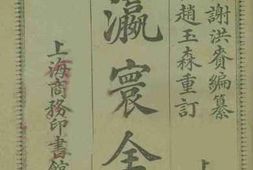 謝洪賚編纂
趙玉森重訂
上
瀛寰全
上海商務印書館